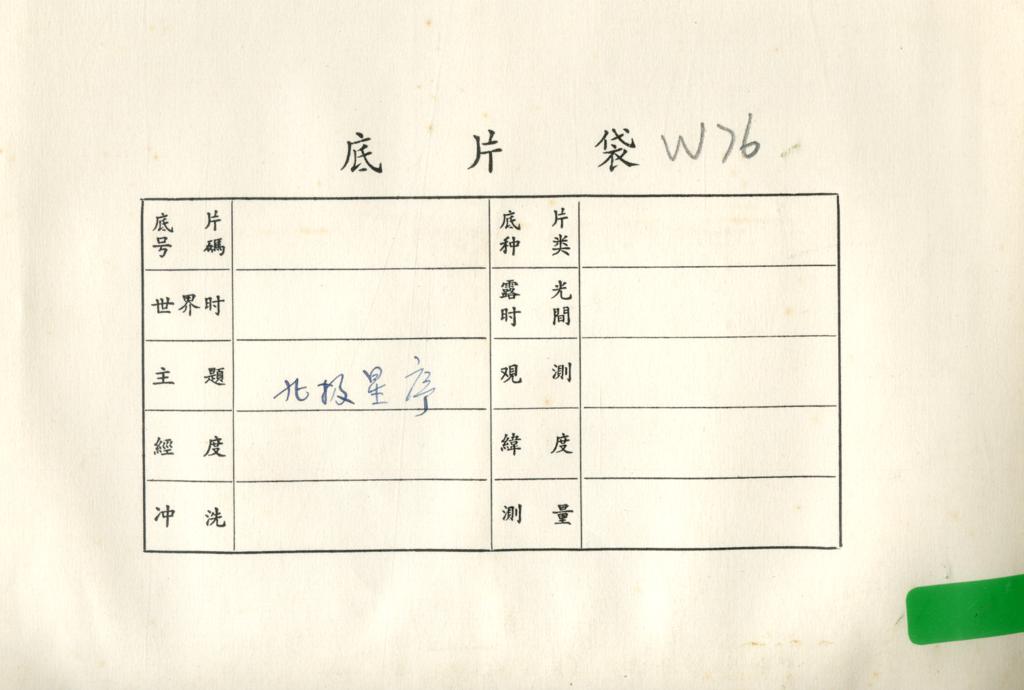 底片袋 W76
底片号碼 底片种类
世界时 露光时間
主題 北极星序 观測
經度 緯度
冲洗 測量